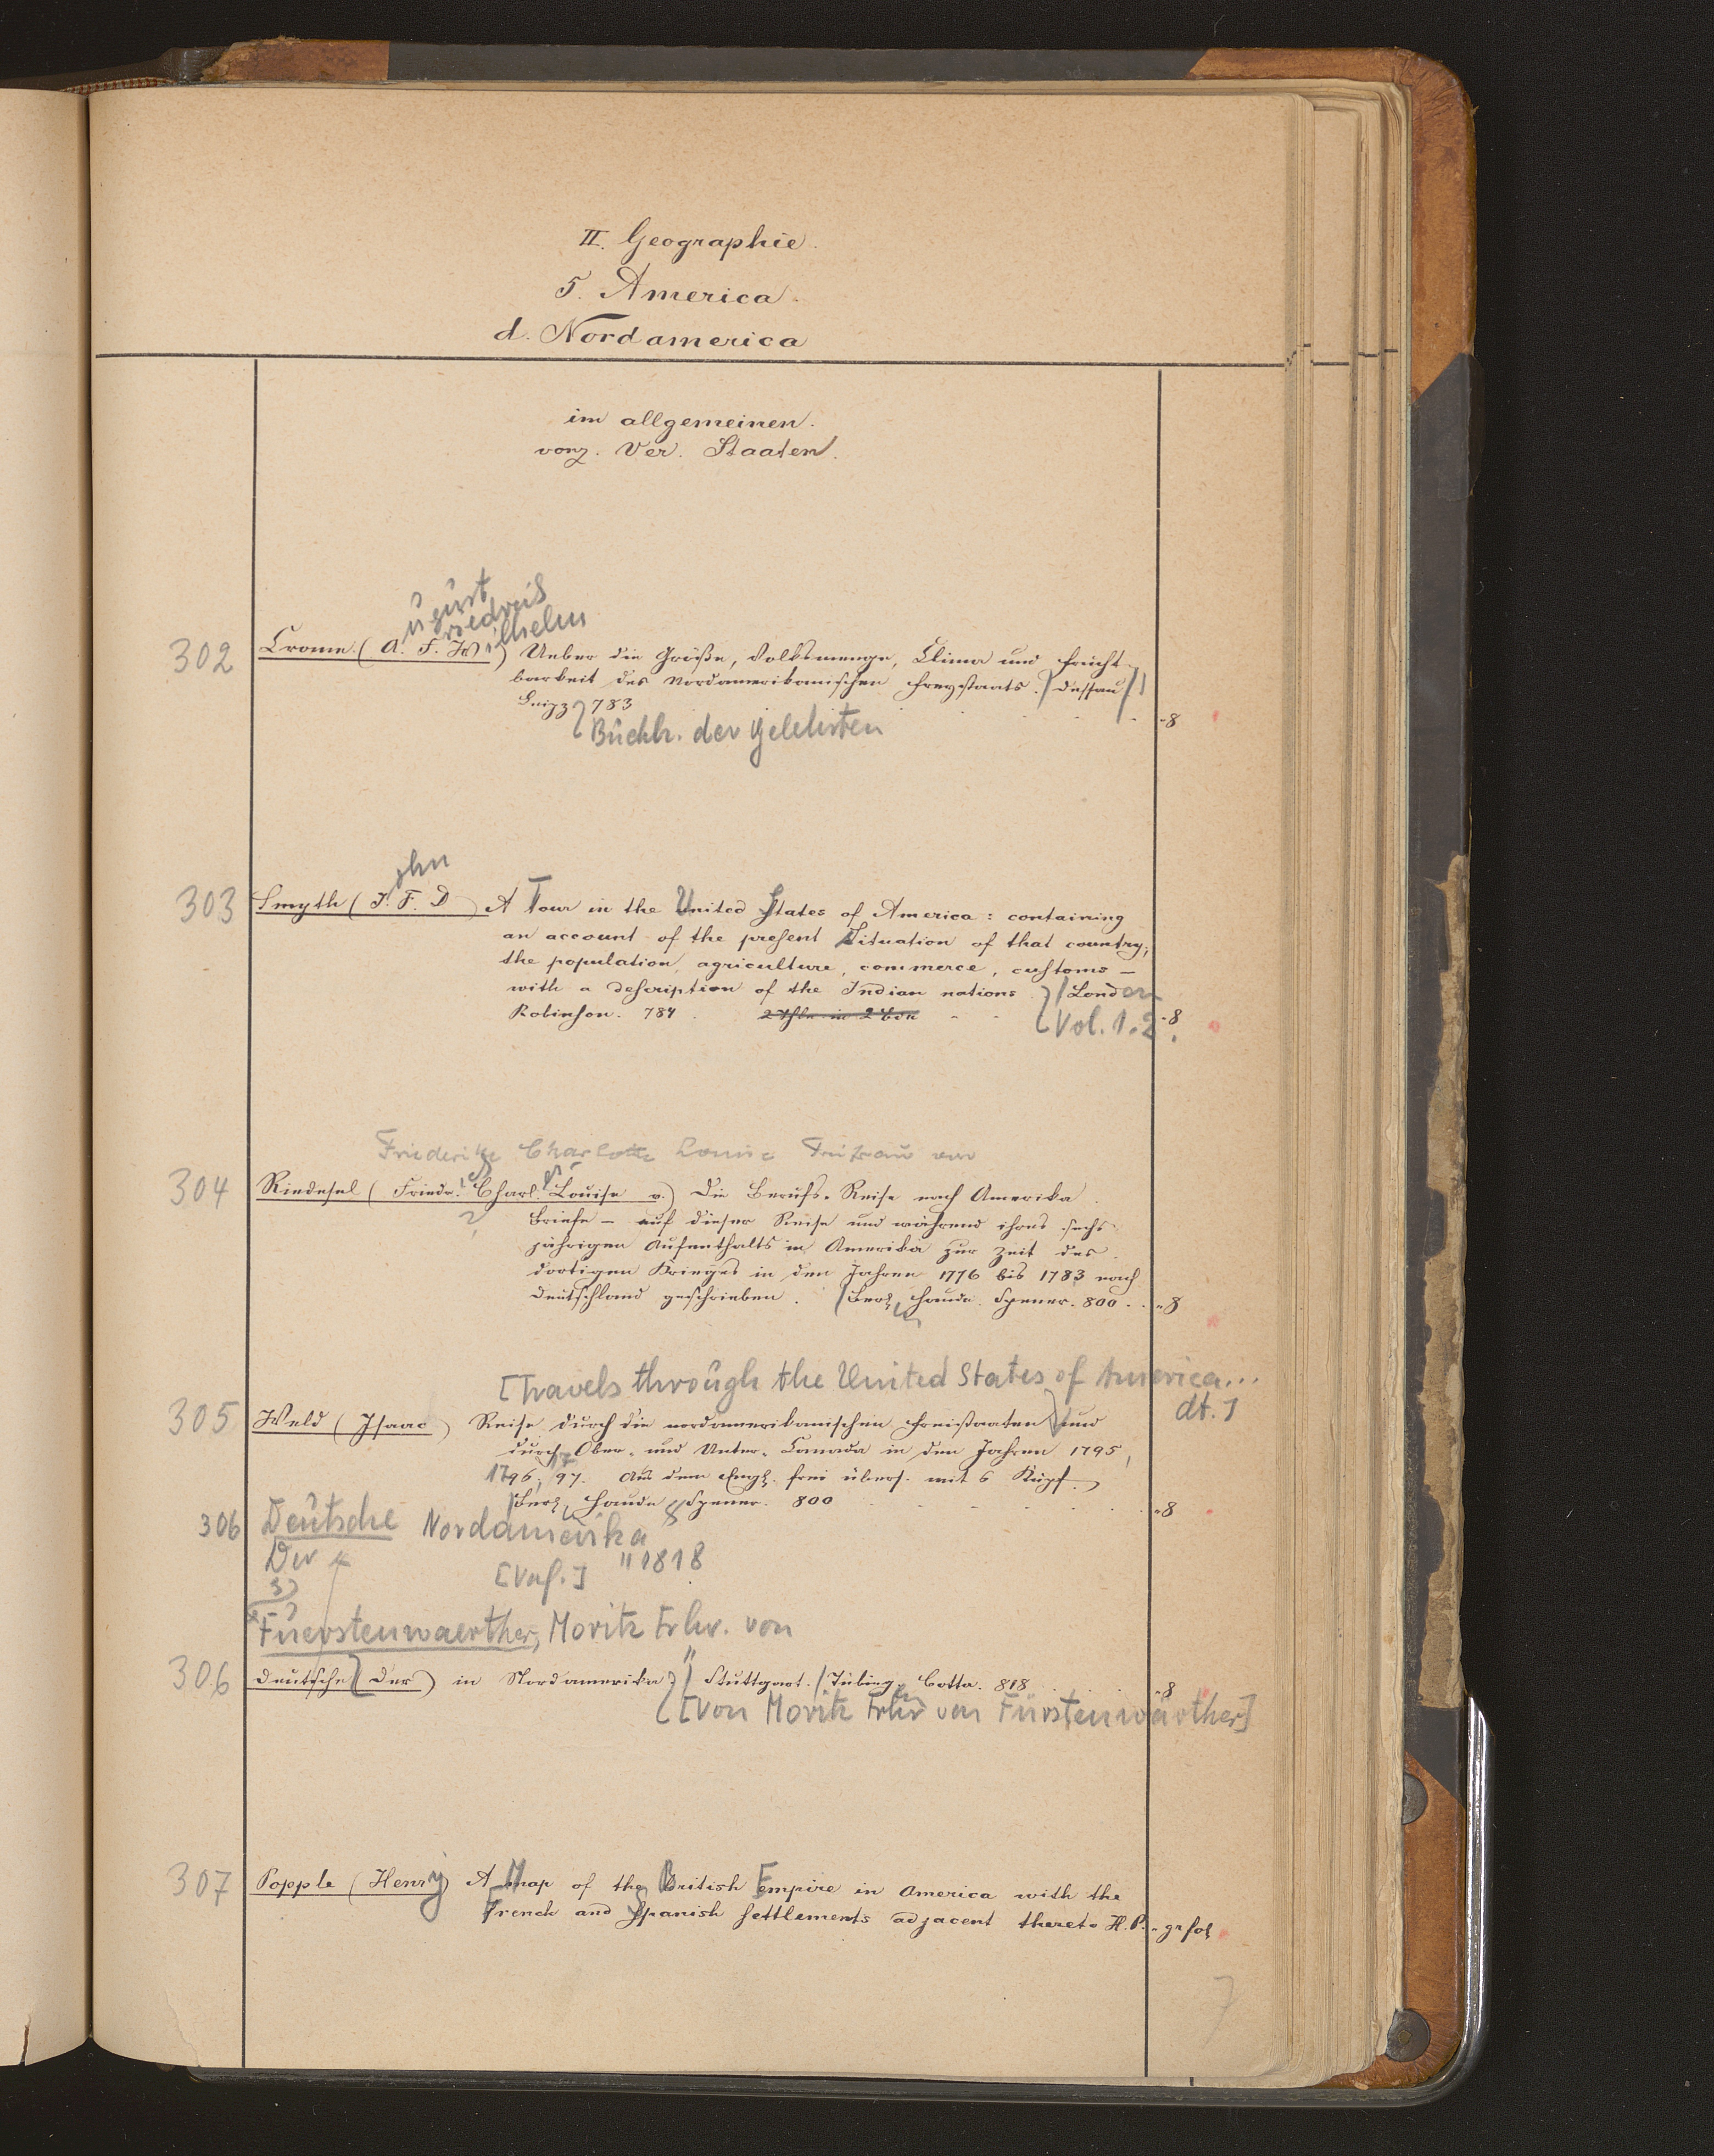 II. Geographie.
5. America.
d. Nordamerica
im allgemeinen.
vorz. Ver. Staaten.
ugust
riedrich
ilhelm
302 Crome. (A. F. W.) Ueber die Größe, Volksmenge, Clima und Frucht-
barkeit des Nordamerikanischen Freystaats. Dessau
Leipz 783 - 8
Buchh. der Gelehrten
ohn
303 Smyth (J. F. D) A Tour in the United States of America: containing
an account of the present Situation of that country;
the population, agriculture, commerce, customs —
with a description of the Indian nations. London
Robinson. 784. 2 Thle in 2 Bdn - 8
Vol. 1.2.
Friederike Charlotte Louise Freifrau von
304 Riedesel (Friedr. Charl. Louise v.) Die Berufs-Reise nach Amerika.
Briefe — auf dieser Reise und während ihres sechs-
jährigen Aufenthalts in Amerika zur Zeit des
dortigen Krieges in den Jahren 1776 bis 1783 nach
Deutschland geschrieben. Berl. Haude. Spener. 800. - 8
[Travels through the United States of America...
dt.]
305 Weld (Isaac) Reise durch die nordamerikanischen Freistaaten und
durch Ober- und Unter-Canada in den Jahren 1795,
1796, 97. Aus dem Engl. frei übers. mit 6 Kupf.
Berl. Haude & Spener. 800 - 8
306 Deutsche Nordamerika
Der
[Verf.] " 1818
Fuerstenwaerther, Moritz Frhr. von
306 Deutsche (Der) in Nordamerika Stuttgart. / Tübing. Cotta. 818 - 8
[Von Moritz Frhr von Fürstenwärther]
307 Popple (Henry) A Map of the British Empire in America with the
French and Spanish settlements adjacent thereto H. P. - gr fol
7